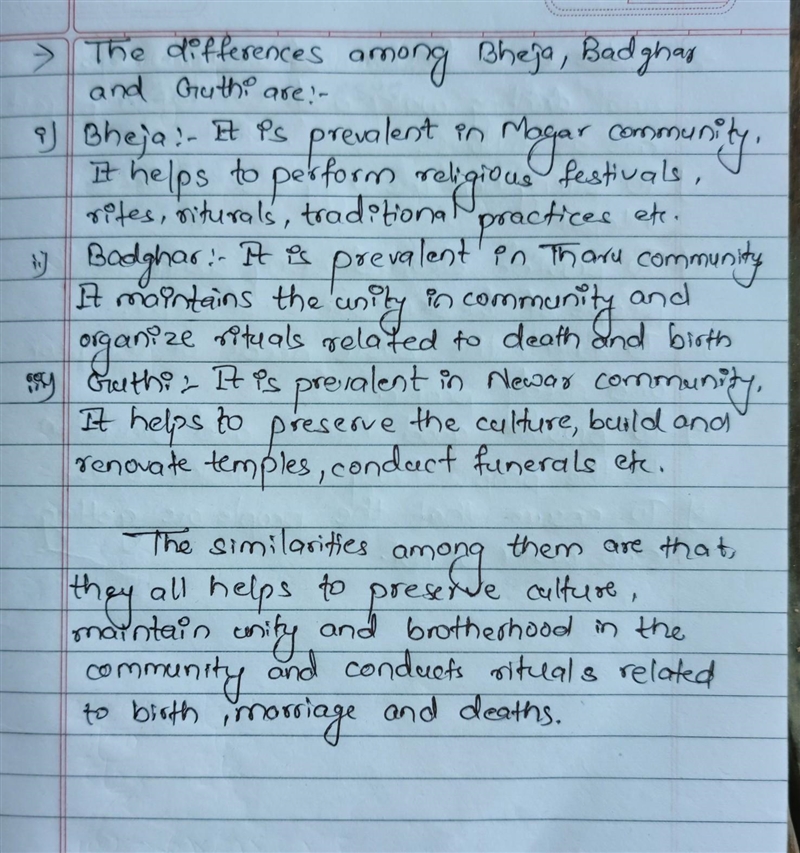 → The differences among Bheja, Badghar
and Guthi are:-
i) Bheja:- It is prevalent in Magar community.
It helps to perform religious festivals,
rites, riturals, traditional practices etc.
ii) Badghar:- It is prevalent in Tharu community
It maintains the unity in community and
organize rituals related to death and birth
iii) Guthi:- It is prevalent in Newar community.
It helps to preserve the culture, build and
renovate temples, conduct funerals etc.
The similarities among them are that,
they all helps to preserve culture,
maintain unity and brotherhood in the
community and conducts rituals related
to birth, marriage and deaths.